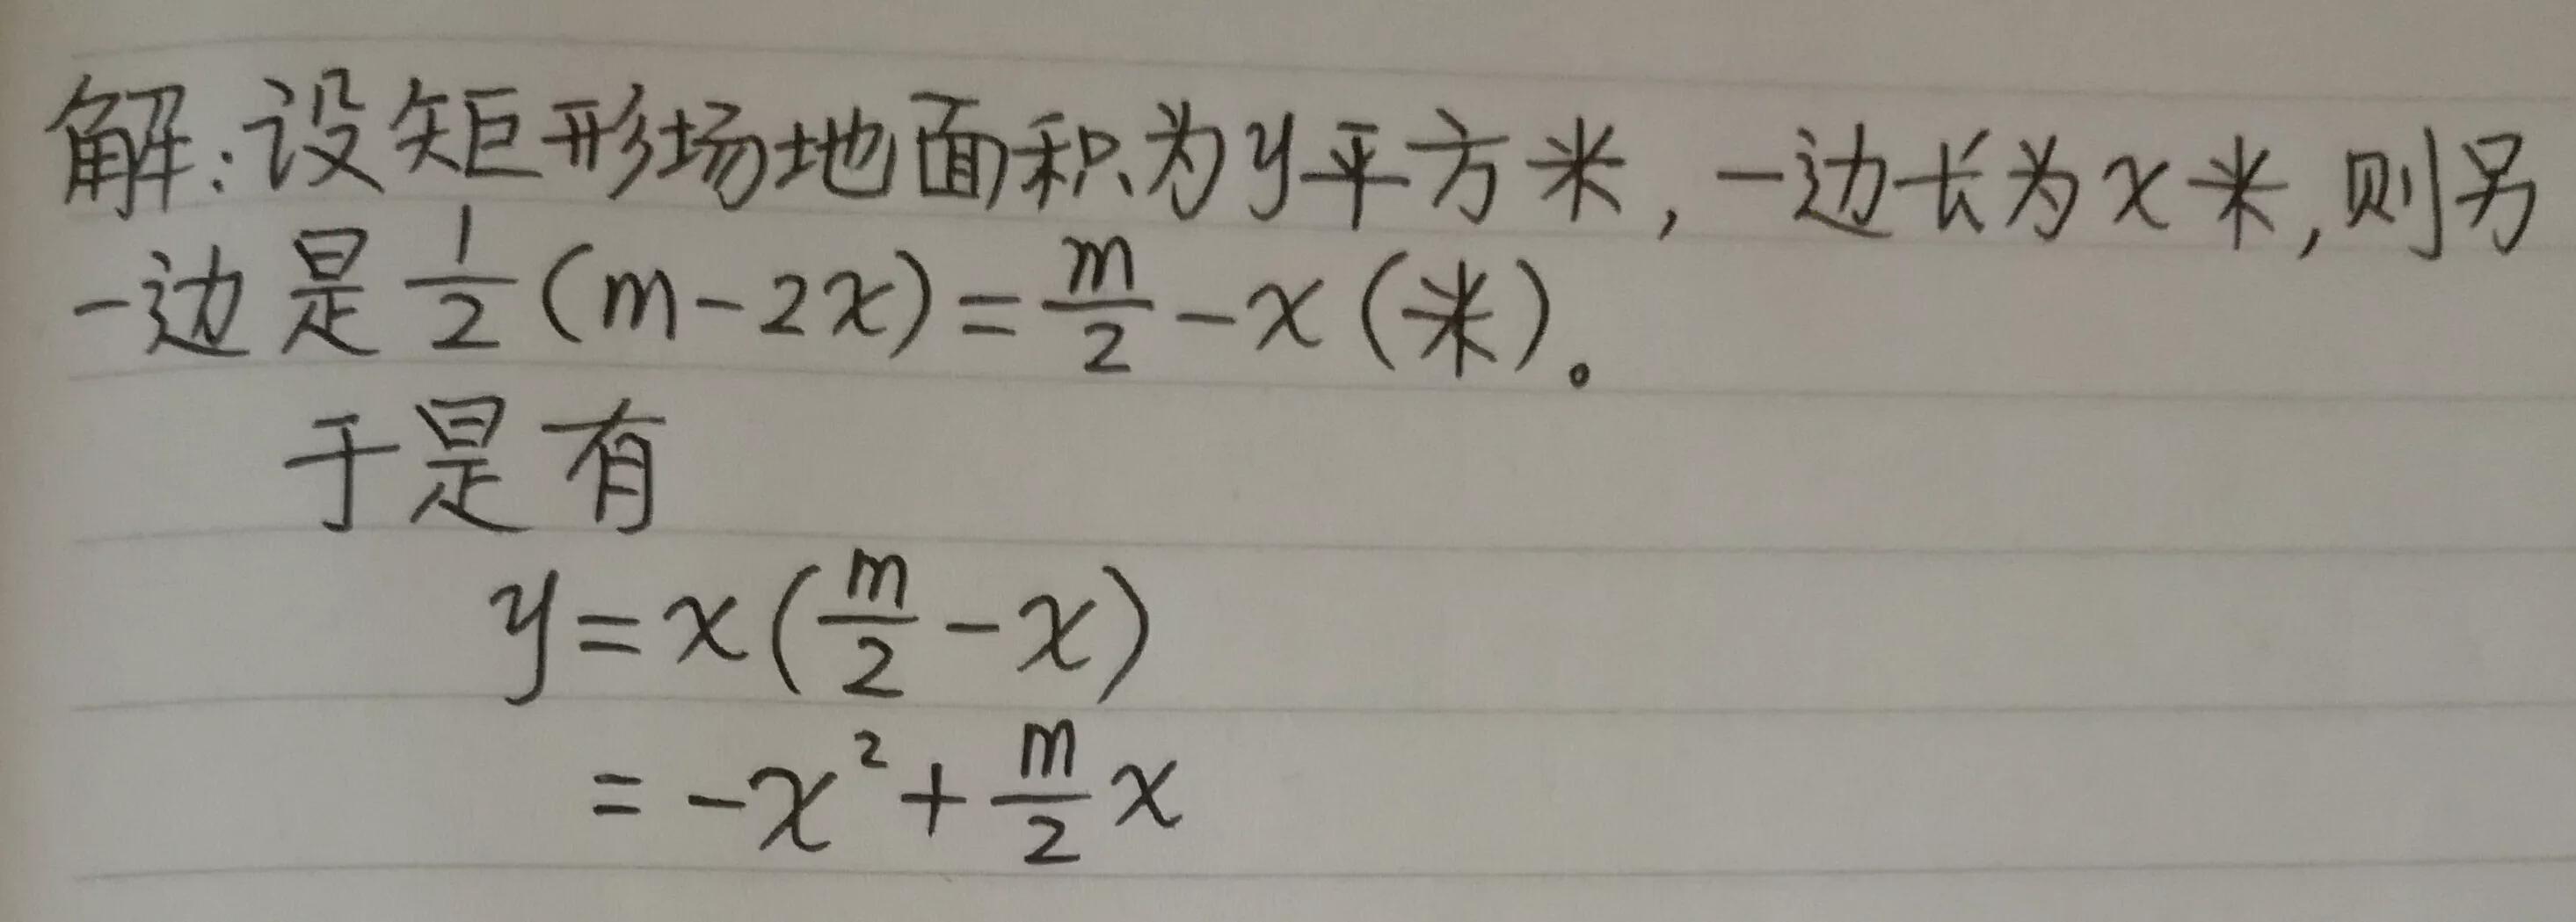 解:设矩形场地面积为y平方米,一边长为x米,则另
一边是\frac{1}{2}(m-2x)=\frac{m}{2}-x(米)。
于是有
y=x(\frac{m}{2}-x)
=-x²+\frac{m}{2}x